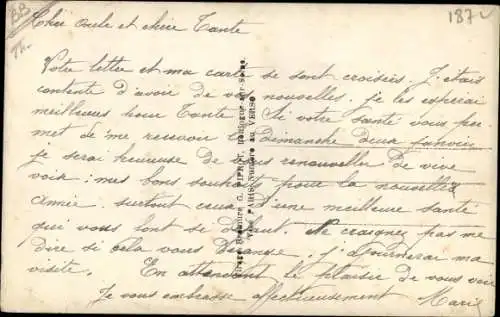 BB
Th.
187
Cher oncle et chère Tante
Votre lettre et ma carte se sont croisées. J'étais
contente d'avoir de vos nouvelles. je les espérai
meilleures pour Tante. Si votre santé vous per
met de me recevoir le Dimanche deux janvier
je serai heureuse de vous renouveller de vive
voix mes bons souhaits pour la nouvelle
Année surtout ceux d'une meilleure santé
qui vous font se défaut. Ne craignez pas me
dire si cela vous dérange. j'ajournerai ma
visite. En attendant le plaisir de vous voir
Je vous embrasse affectueusement Marie
Tirage Bromure G. Boulogne-sur-Seine
PARIS Numéro au VERSO